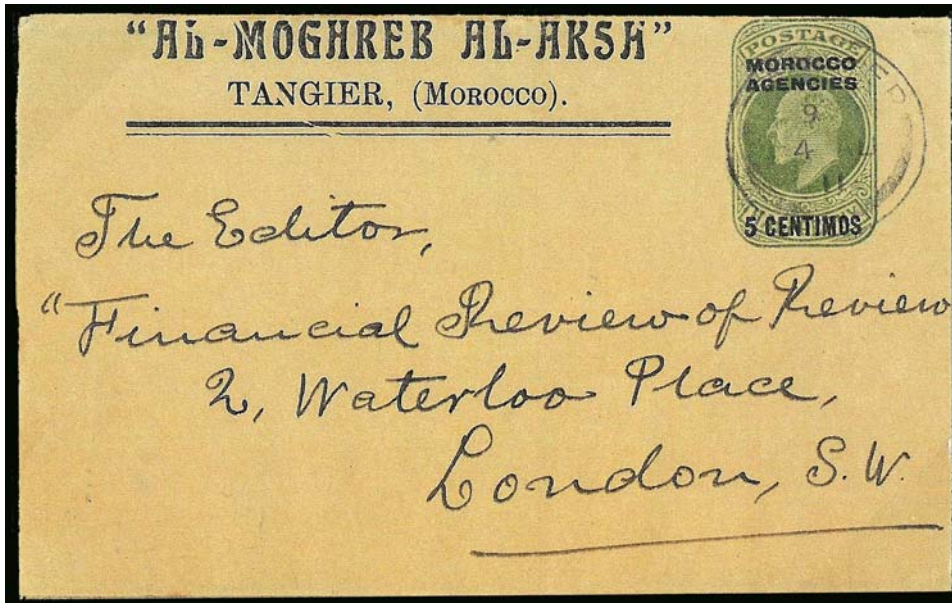 "AL-MOGHREB AL-AKSA"
TANGIER, (MOROCCO).
POSTAGE
MOROCCO
AGENCIES
9
4
11
5 CENTIMOS
The Editor,
"Financial Review of Review
2, Waterloo Place,
London, S.W.